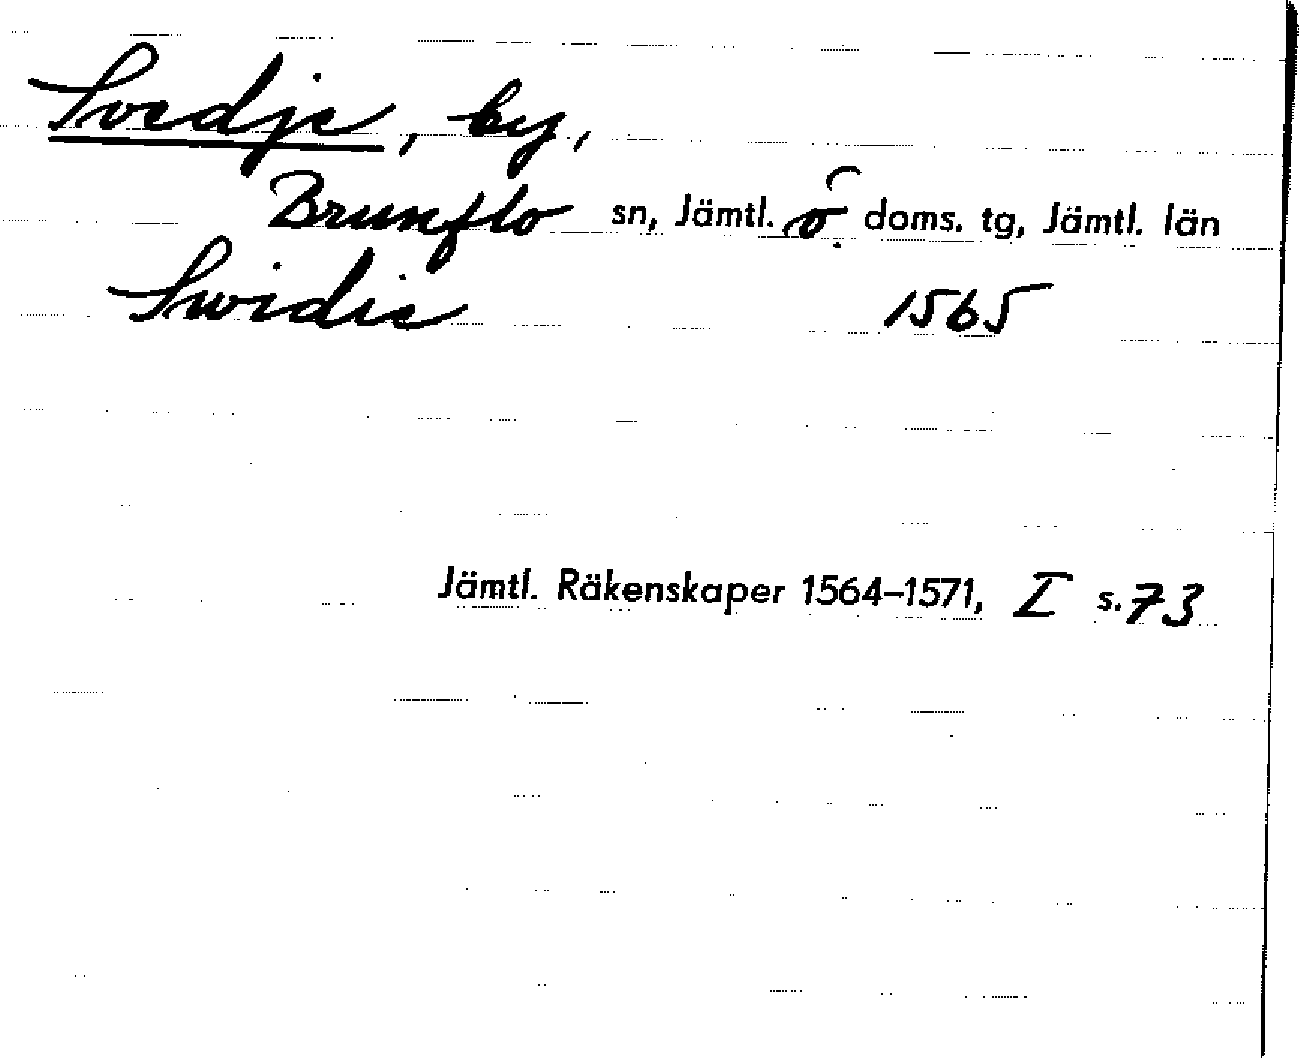 Svedje, by,
Brunflo sn, Jämtl. ö. doms. tg, Jämtl. län
Swidie 1565
Jämtl. Räkenskaper 1564–1571, I s. 73